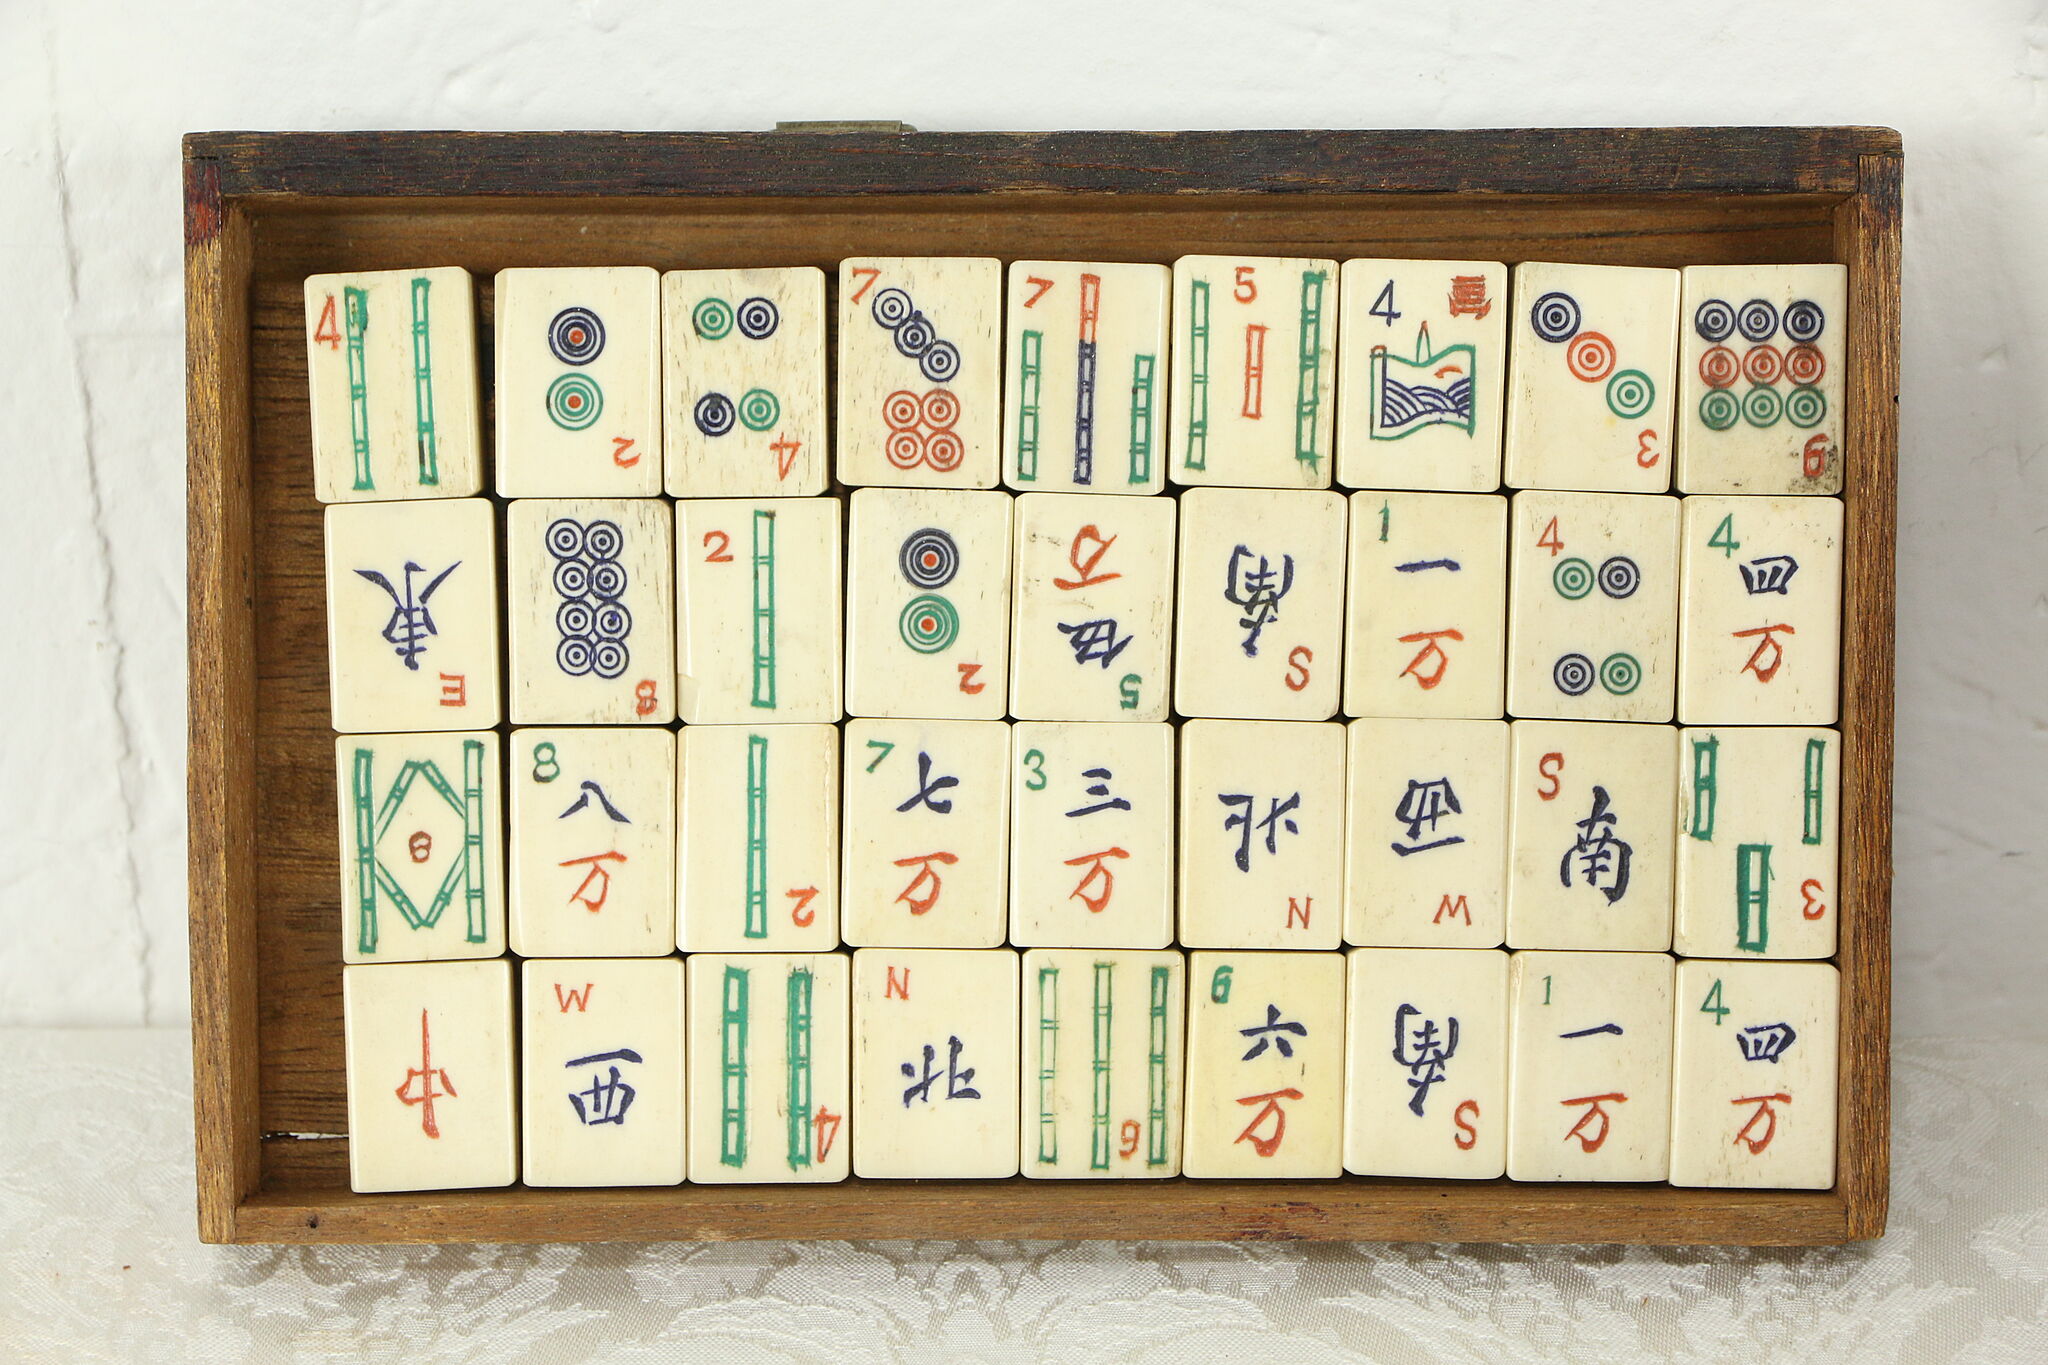 4
2
4
7
7
5
4
3
9
E 東
8
2
2
5 伍 万
S 南
1 一 万
4
4 四 万
8
8 八 万
2
7 七 万
3 三 万
N 北
W 西
S 南
3
中
W 西
4
N 北
6
6 六 万
S 南
1 一 万
4 四 万